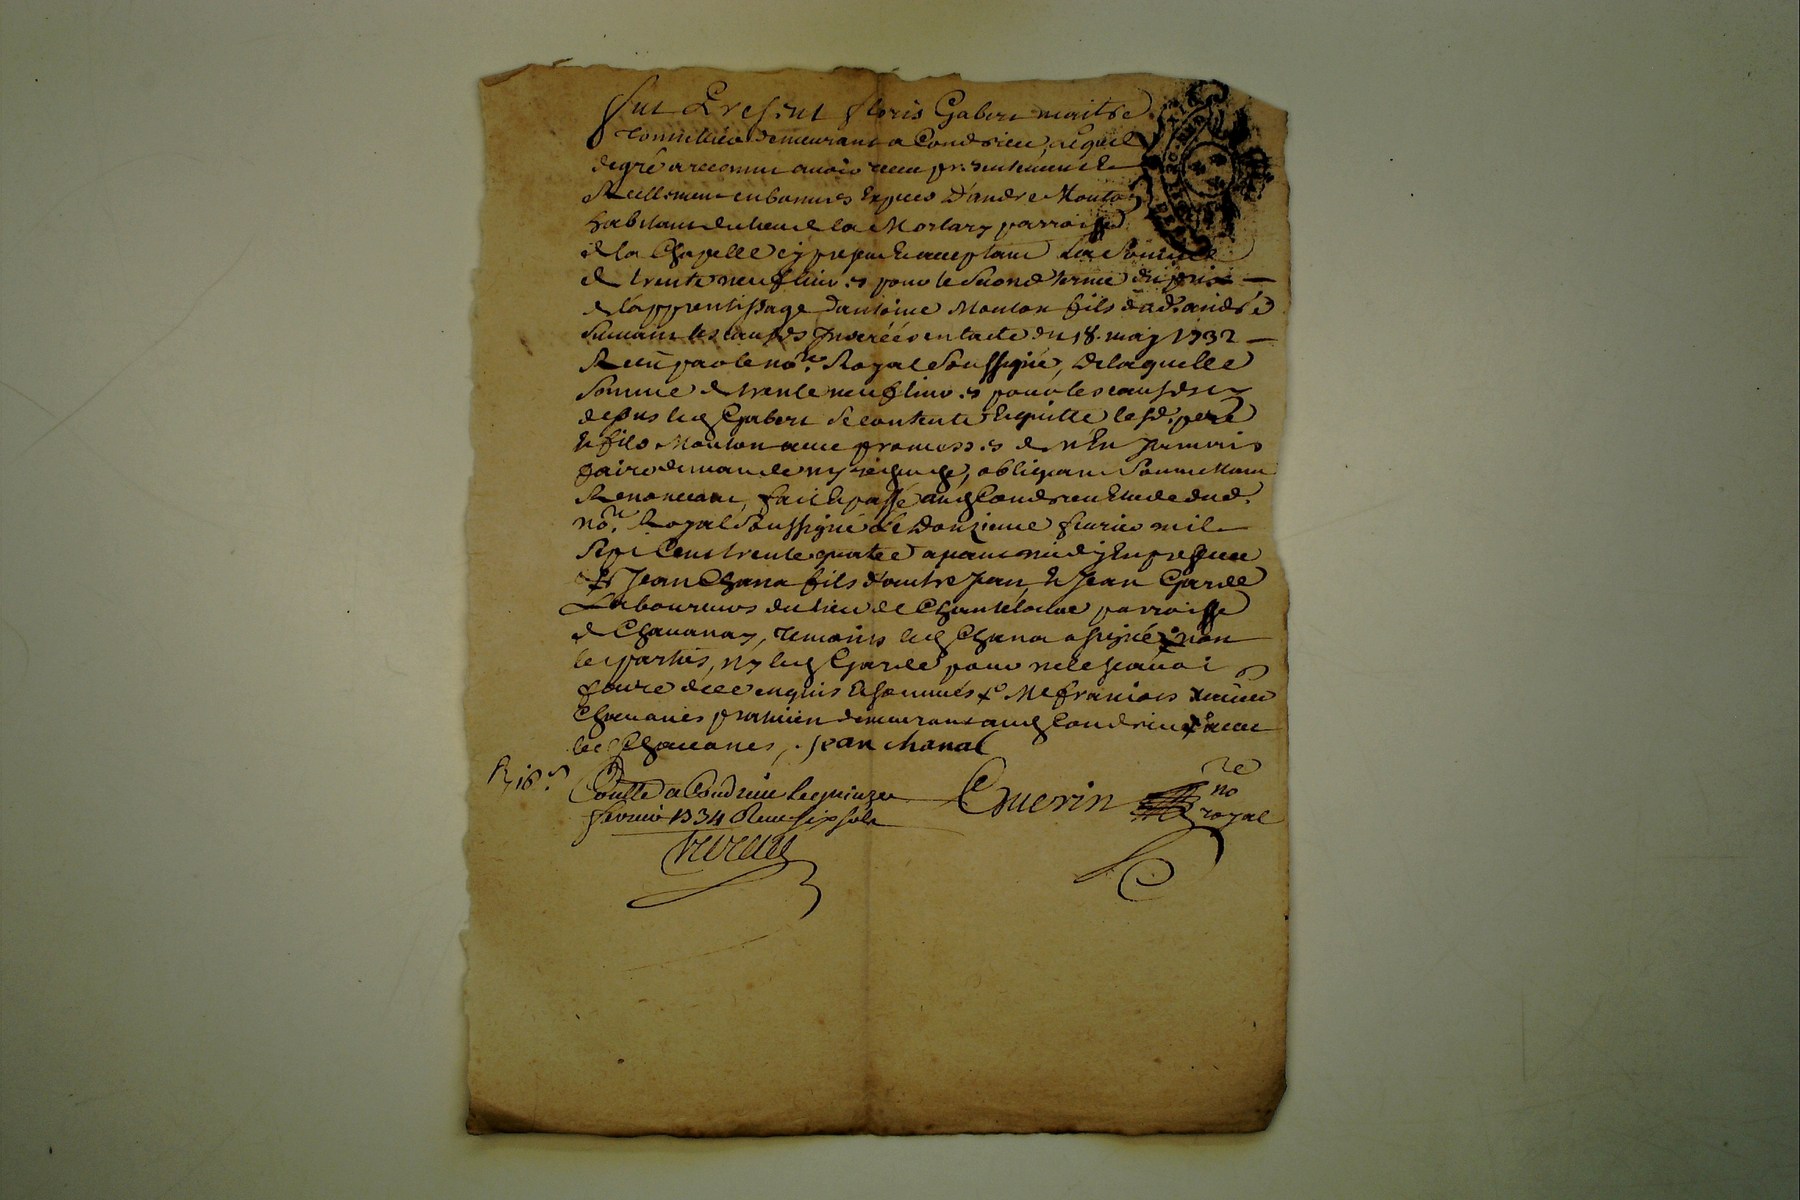 fut Present floris Gabert maitre
Tonnellier demeurant a Condrieu, lequel
de gré a reconnu avoir receu presentement &
Reellement en bonnes Especes D'andre Mouton
habitant du lieu de la Morlary parroisse
de la Chapelle cy present & acceptant La Somme
de trente neuf livres pour le second terme du prix
de l'apprentissage d'antoine Mouton fils dud. andré
Suivant les causes Inserées en lacte du 18. may 1732
Receu par le nore. Royal Soussigné, De laquelle
Somme de trente neuf livres pour les causes cy
dessus led Gabert se contente & quitte lesd. pere
& fils Mouton avec promesses de n'En Jamais
faire demande ny recherche, obligeant Soumettant
Renonceant, fait & passé aud Condrieu Etude dud.
nore. Royal Soussigné Le Douzieme fevrier mil
Sept Cent trente quatre avant midy En presence
de Jean Chana fils d'autre Jean, & Jean Garde
Laboureurs du lieu de Chanteloube parroisse
de Chavanay, temoins led Chana a signé non
les parties, ny led Garde pour ne le scavoir
faire de ce enquis & sommés & Me francois
Chavanes praticien demeurant aud Condrieu avec
led Chavanes, Jean chanal
Collé a Condrieu le quinze
fevrier 1734 Receu six sols
Guerin nore
royal